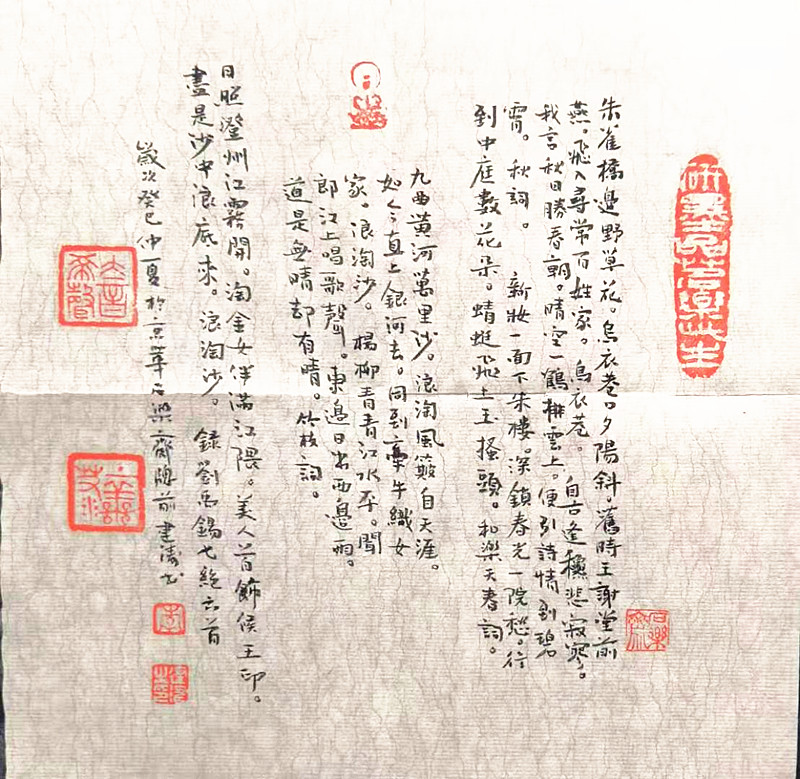 朱雀橋邊野草花。烏衣巷口夕陽斜。舊時王謝堂前
燕。飛入尋常百姓家。烏衣巷。自古逢穐悲寂寥。
我言秋日勝春朝。晴空一鶴排雲上。便引詩情到碧
霄。秋詞。新妝一面下朱樓。深鎖春光一院愁。行
到中庭數花朵。蜻蜓飛上玉搔頭。和樂天春詞。
九曲黃河萬里沙。浪淘風簸自天涯。
如今直上銀河去。同到牽牛織女
家。浪淘沙。楊柳青青江水平。聞
郎江上唱歌聲。東邊日出西邊雨。
道是無晴却有晴。竹枝詞。
日照澄州江霧開。淘金女伴滿江隈。美人首飾侯王印。
盡是沙中浪底來。浪淘沙。録劉禹錫七絕六首
歲次癸巳仲夏於京華石樂齋牕前建濤書
石樂齋
大音希聲
李